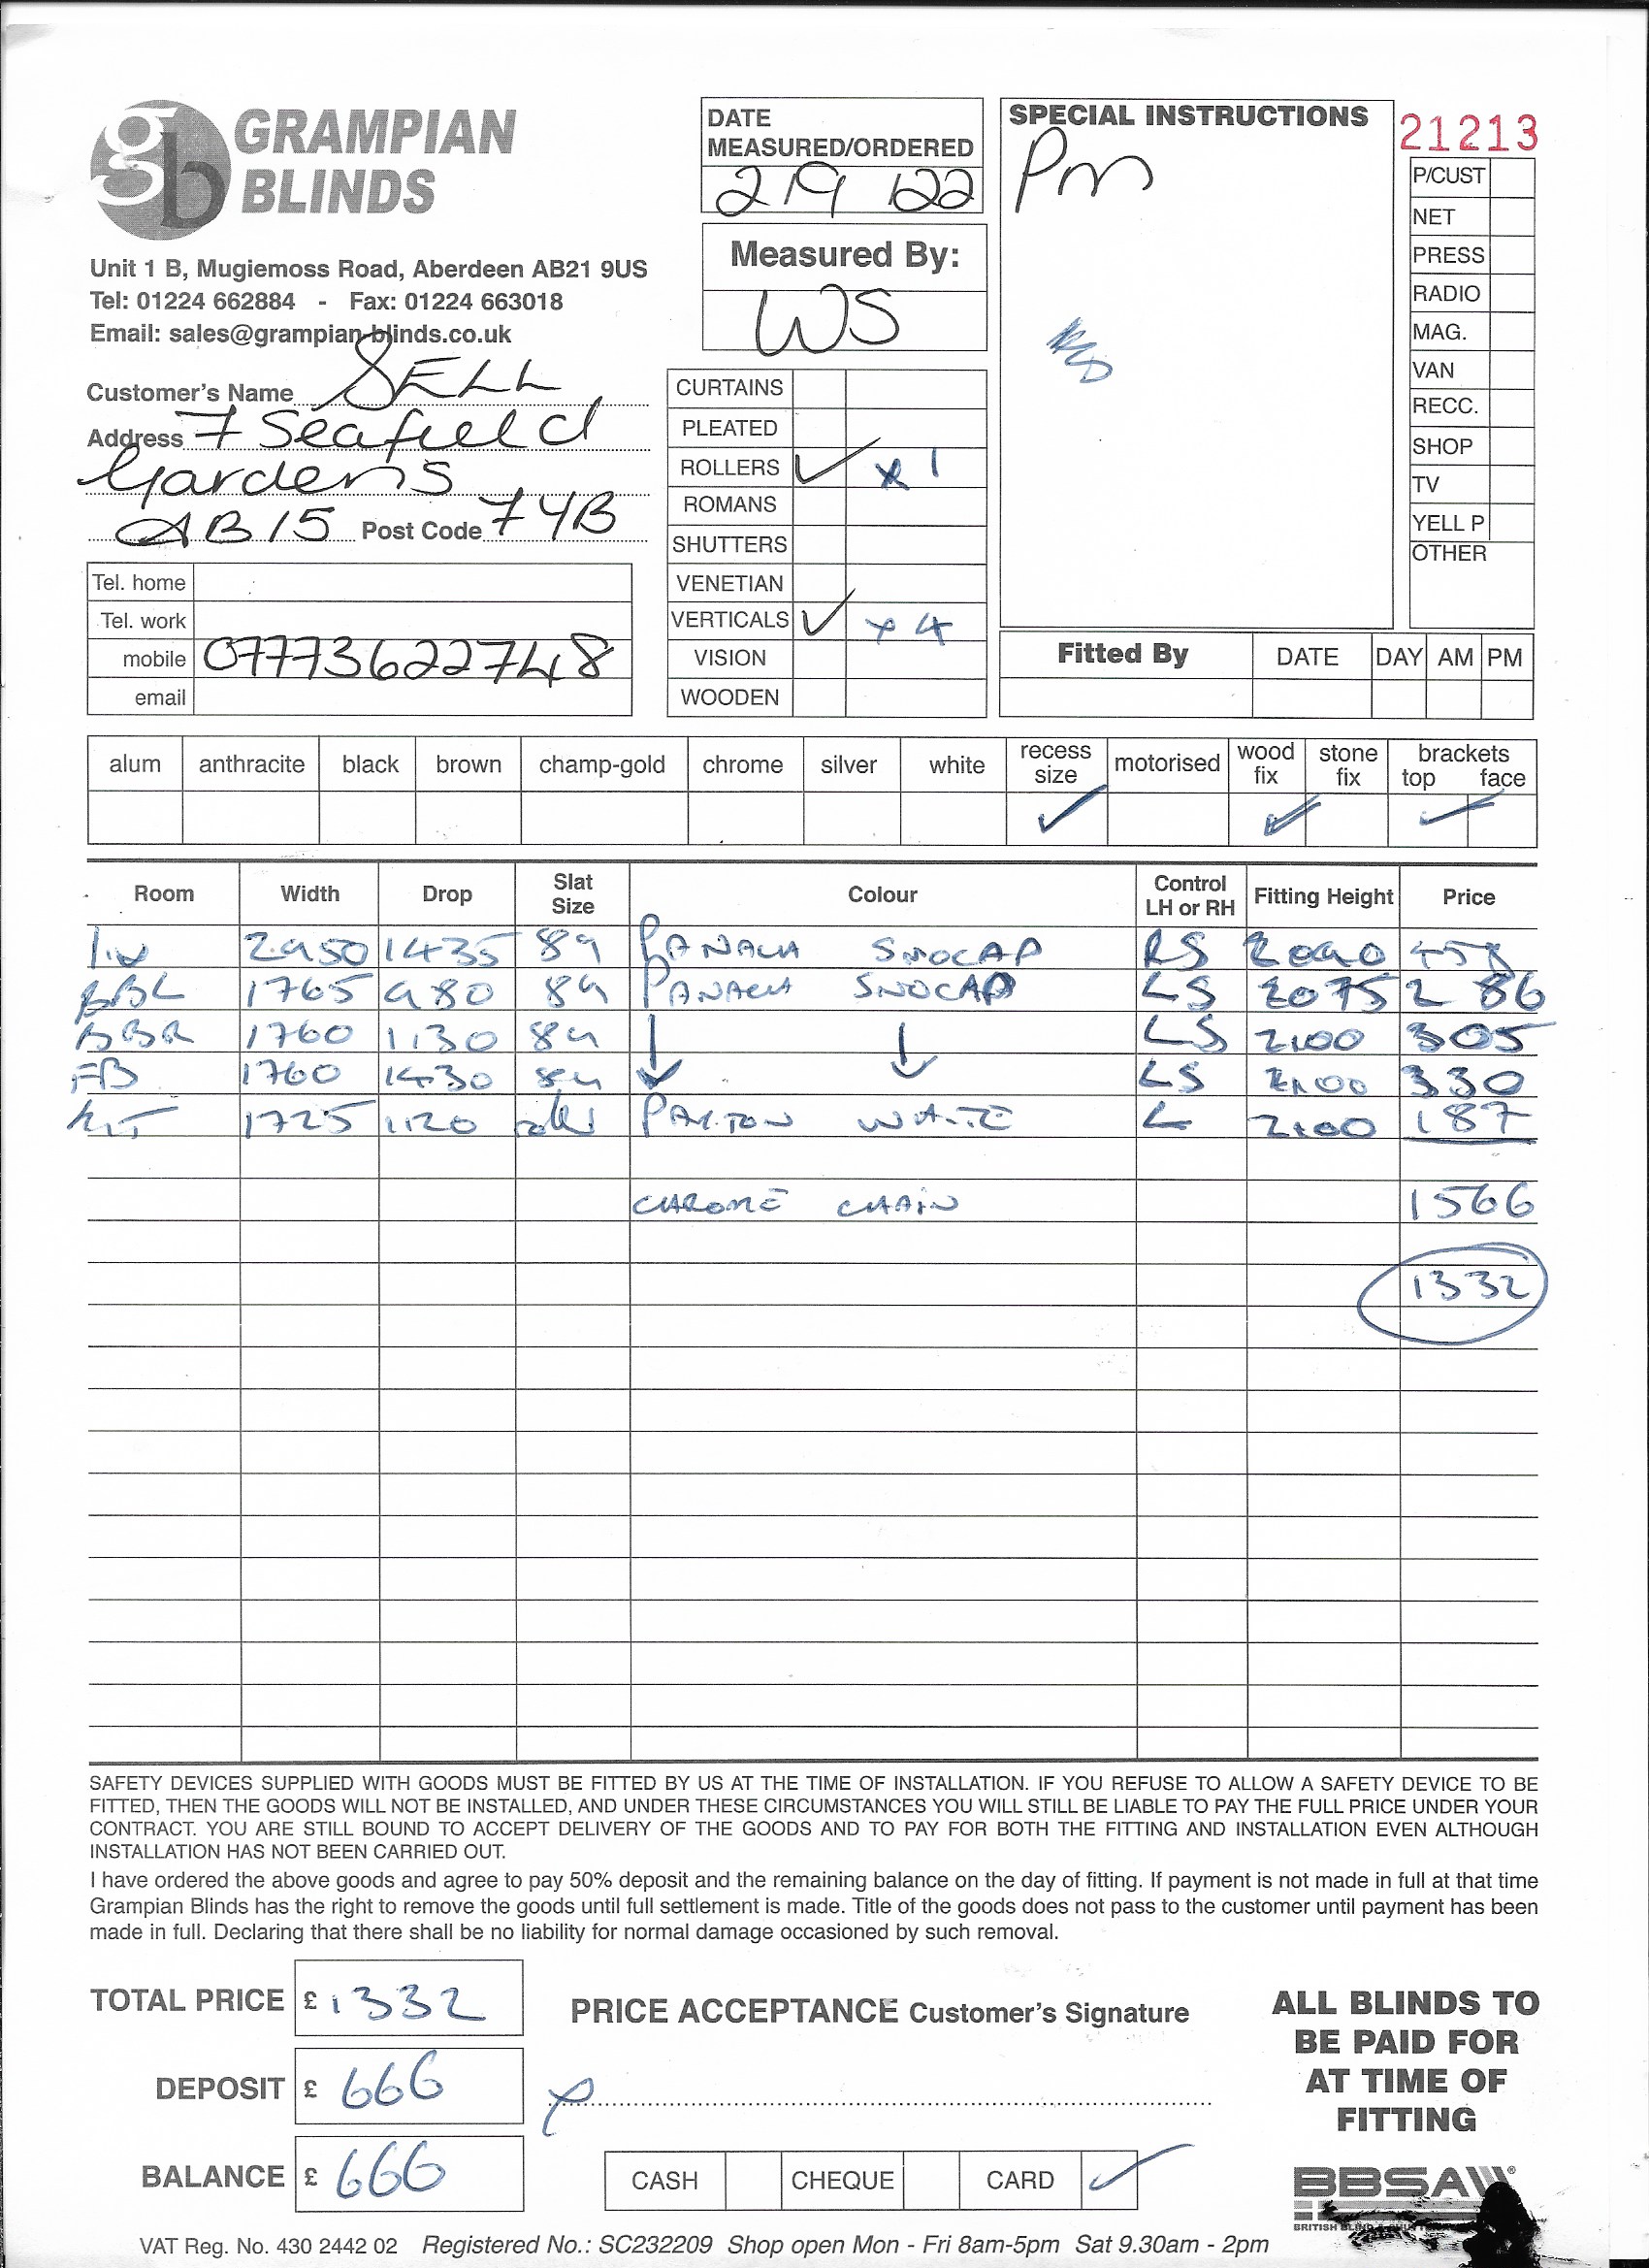 gb GRAMPIAN BLINDS
Unit 1 B, Mugiemoss Road, Aberdeen AB21 9US
Tel: 01224 662884 - Fax: 01224 663018
Email: sales@grampian-blinds.co.uk
Customer's Name SELL
Address 7 Seafield
Gardens
AB15 Post Code 7YB
Tel. home
Tel. work
mobile 07773622748
email
DATE
MEASURED/ORDERED
2/9/22
Measured By:
WS
CURTAINS
PLEATED
ROLLERS ✓ x 1
ROMANS
SHUTTERS
VENETIAN
VERTICALS ✓ x 4
VISION
WOODEN
SPECIAL INSTRUCTIONS
Pm
21213
P/CUST
NET
PRESS
RADIO
MAG.
VAN
RECC.
SHOP
TV
YELL P
OTHER
Fitted By DATE DAY AM PM
alum anthracite black brown champ-gold chrome silver white recess size motorised wood fix stone fix brackets top face
✓ ✓ ✓
Room Width Drop Slat Size Colour Control LH or RH Fitting Height Price
2950 1435 89 SNOCAP RS 2090 458
BBL 1765 980 89 SNOCAP LS 2075 286
BBR 1760 1130 89 ↓ ↓ LS 2100 305
FB 1760 1430 89 LS 2100 330
KIT 1725 1120 WHITE L 2100 187
CHROME CHAIN 1566
1332
SAFETY DEVICES SUPPLIED WITH GOODS MUST BE FITTED BY US AT THE TIME OF INSTALLATION. IF YOU REFUSE TO ALLOW A SAFETY DEVICE TO BE
FITTED, THEN THE GOODS WILL NOT BE INSTALLED, AND UNDER THESE CIRCUMSTANCES YOU WILL STILL BE LIABLE TO PAY THE FULL PRICE UNDER YOUR
CONTRACT. YOU ARE STILL BOUND TO ACCEPT DELIVERY OF THE GOODS AND TO PAY FOR BOTH THE FITTING AND INSTALLATION EVEN ALTHOUGH
INSTALLATION HAS NOT BEEN CARRIED OUT.
I have ordered the above goods and agree to pay 50% deposit and the remaining balance on the day of fitting. If payment is not made in full at that time
Grampian Blinds has the right to remove the goods until full settlement is made. Title of the goods does not pass to the customer until payment has been
made in full. Declaring that there shall be no liability for normal damage occasioned by such removal.
TOTAL PRICE £ 1332
DEPOSIT £ 666
BALANCE £ 666
PRICE ACCEPTANCE Customer's Signature
CASH CHEQUE CARD ✓
ALL BLINDS TO
BE PAID FOR
AT TIME OF
FITTING
BBSA
VAT Reg. No. 430 2442 02 Registered No.: SC232209 Shop open Mon - Fri 8am-5pm Sat 9.30am - 2pm